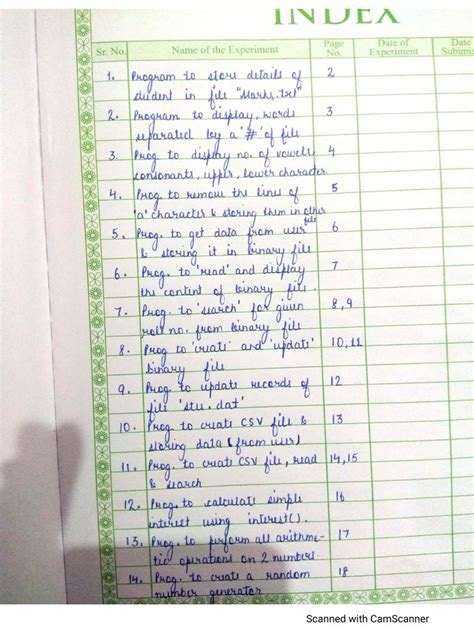 INDEX
Sr. No. Name of the Experiment Page No. Date of Experiment Date
1. Program to store details of 2
student in file "Marks.txt"
2. Program to display, words 3
separated by a '#' of file
3. Prog. to display no. of vowels, 4
consonants, upper, lower character
4. Prog. to remove the lines of 5
'a' character & storing them in other
file
5. Prog. to get data from user 6
& storing it in binary file
6. Prog. to 'read' and display 7
the content of binary file
7. Prog. to 'search' for given 8,9
roll no. from binary file
8. Prog to 'create' and 'update' 10,11
binary file
9. Prog. to update records of 12
file 'stu.dat'
10. Prog. to create CSV file & 13
storing data (from user)
11. Prog. to create CSV file, read 14,15
& search
12. Prog. to calculate simple 16
interest using interest().
13. Prog. to perform all arithme- 17
tic operations on 2 numbers.
14. Prog. to create a random 18
number generator
Scanned with CamScanner